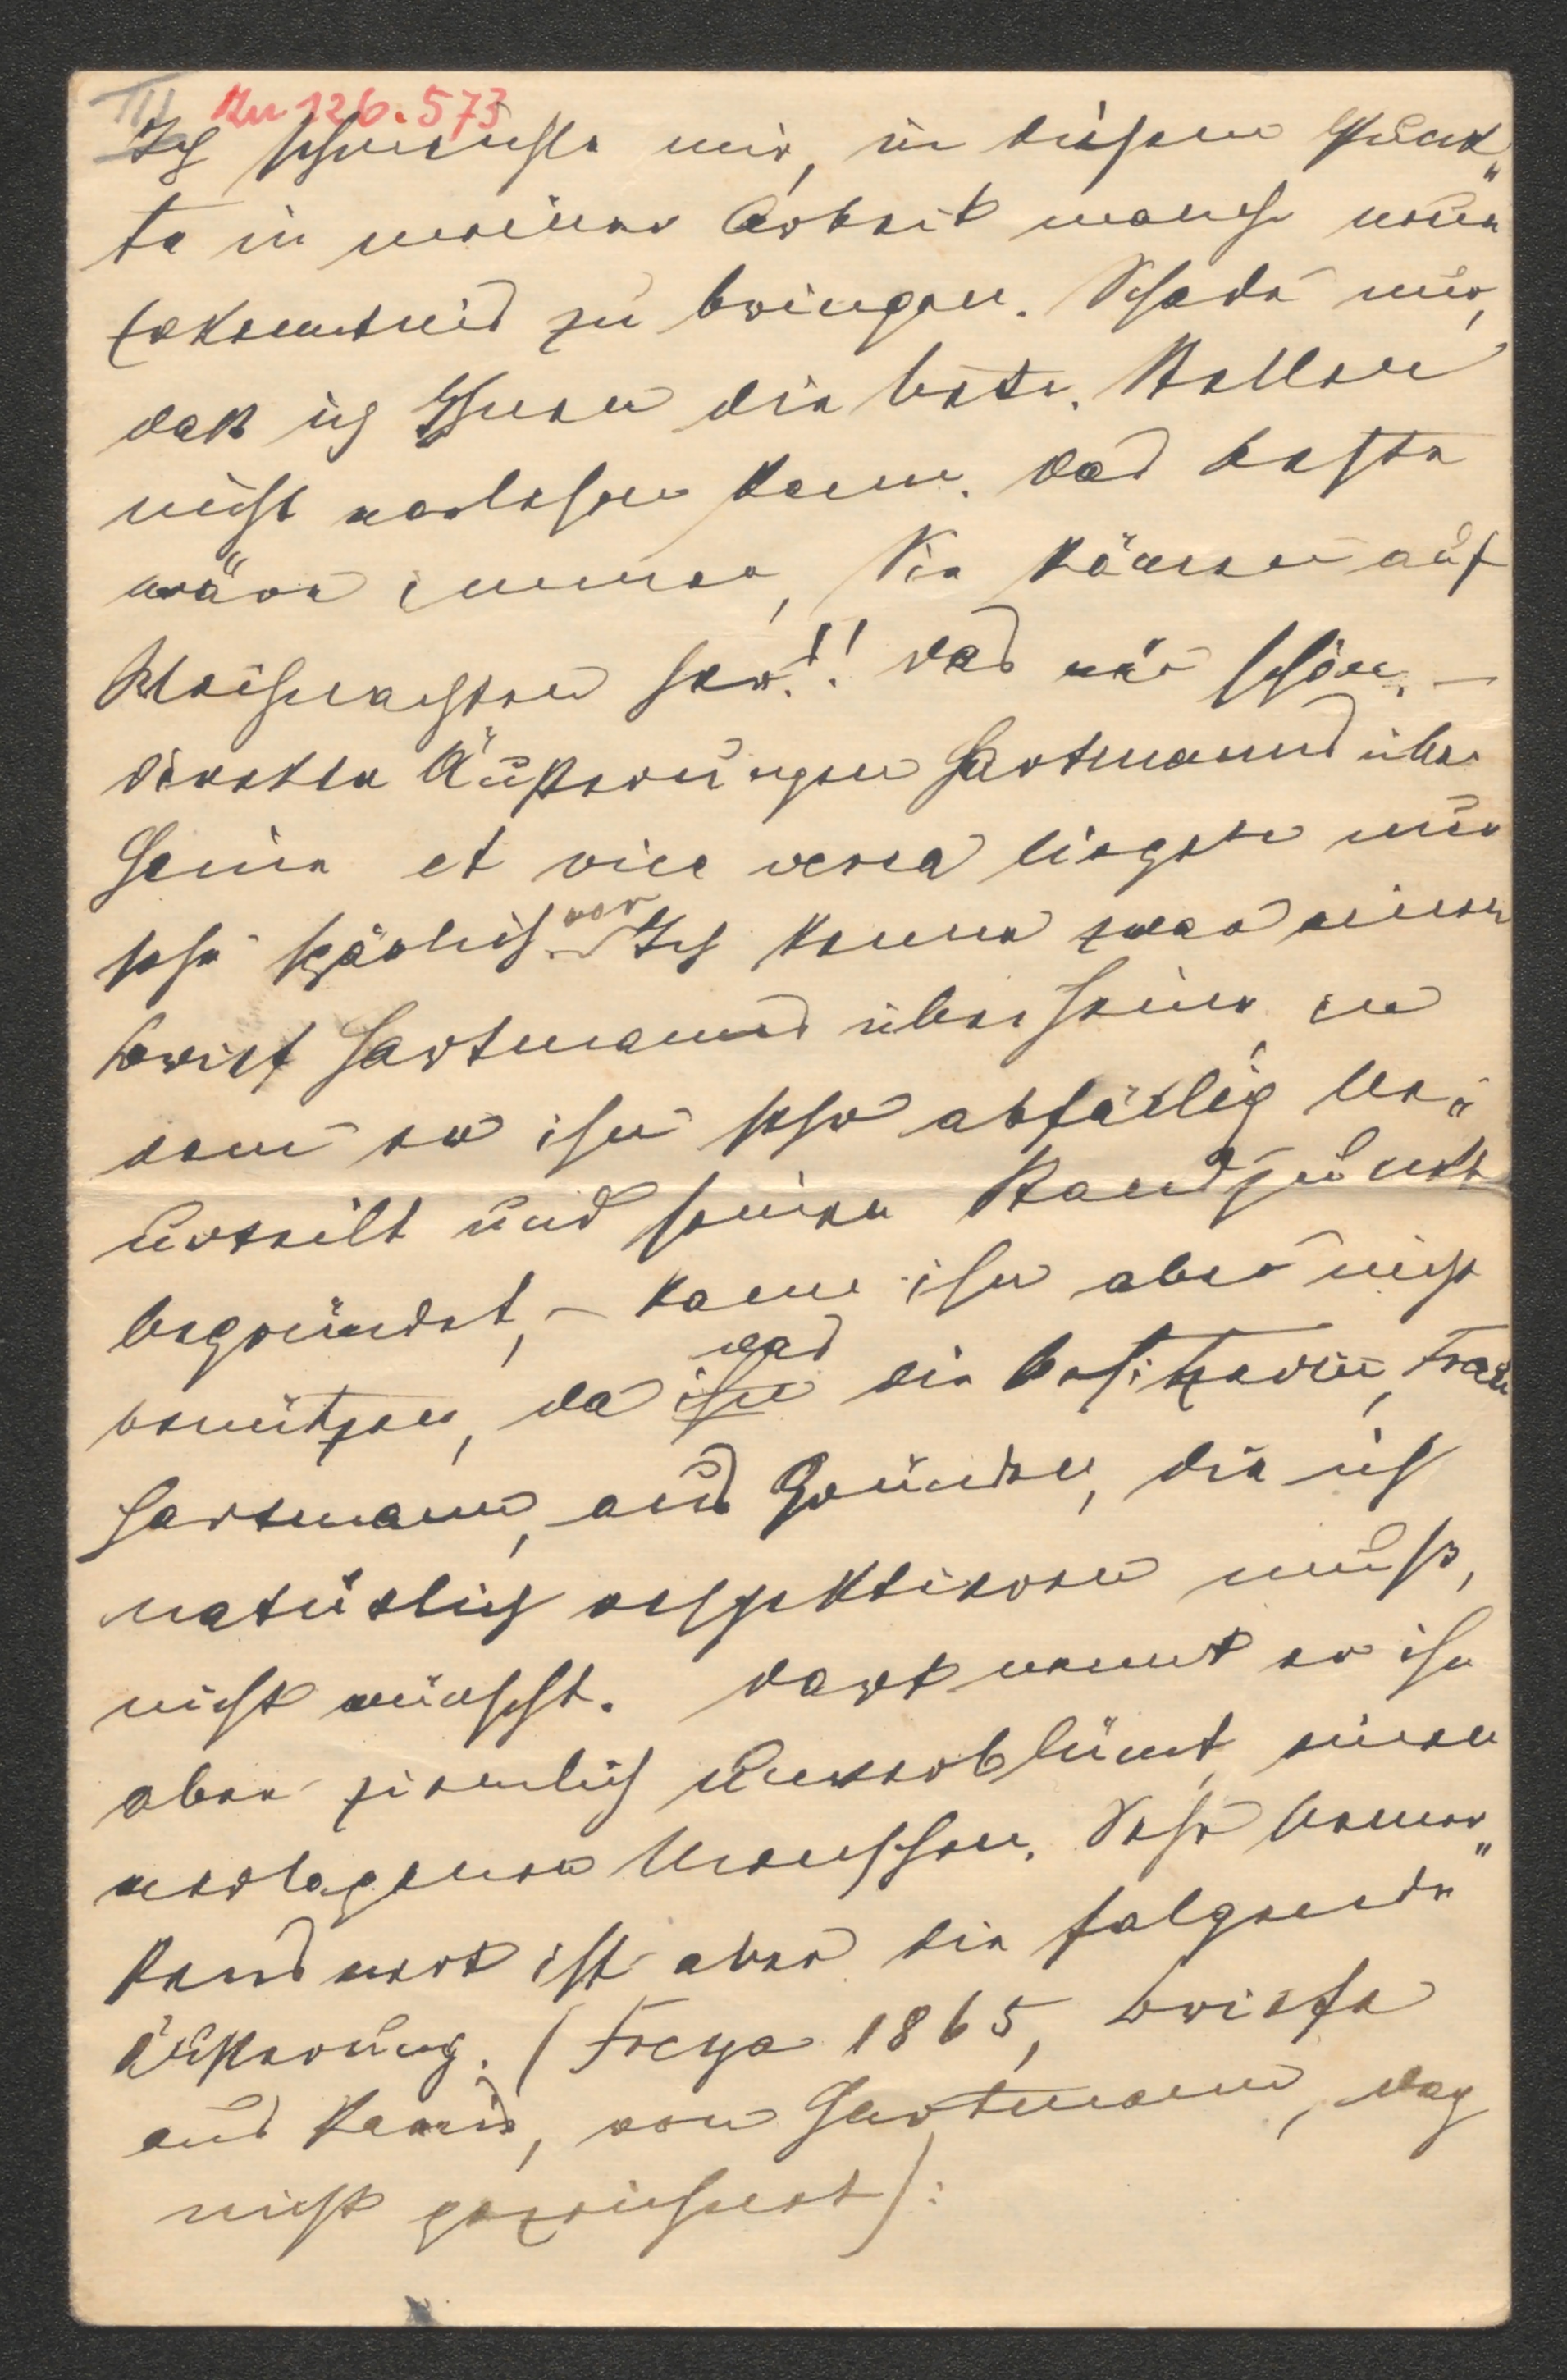 III Zu 126.573
Ich schmeichle mir, in diesem Punk„
te in meiner Arbeit manche neue
Erkenntnis zu bringen. Schade nur,
daß ich Ihnen die betr. Stellen
nicht vorlesen kann. Das beste
wäre immer, Sie kämen auf
Weihnachten her!! Das wär schön. –
Direkte Äußerungen Hartmanns über
Heine et vice versa liegen nur
sehr spärlich vor. Ich kenne zwar einen
Brief Hartmanns über Heine, in
dem er ihn sehr abfällig be„
urteilt und seinen Standpunkt
begründet, – kann ihn aber nicht
benützen, da das die Besitzerin, Frau
Hartmann, aus Gründen, die ich
natürlich respektieren muß,
nicht wünscht. Dort nennt er ihn
aber ziemlich unverblümt einen
verlogenen Menschen. Sehr bemer„
kenswert ist aber die folgende
Äußerung. (Freya 1865, Briefe
aus Paris, von Hartmann, dag
nicht gezeichnet):